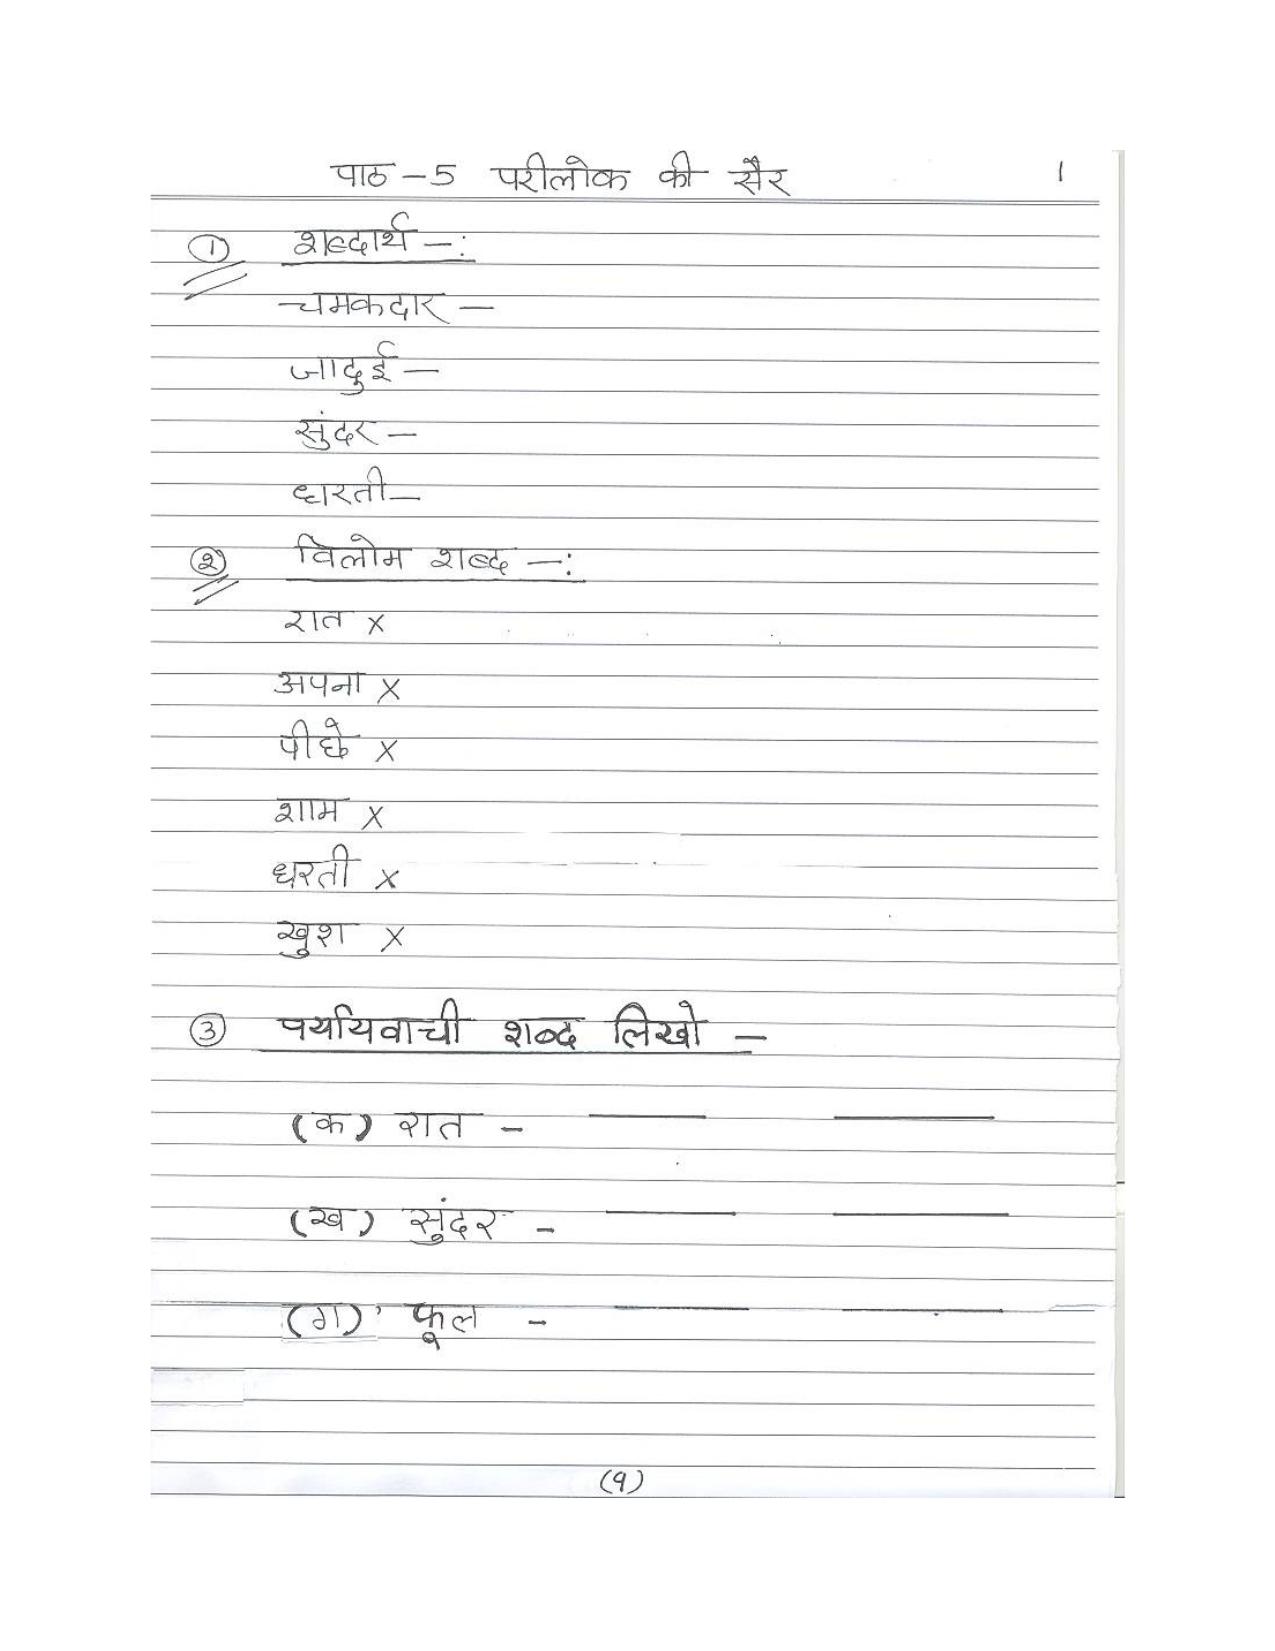 पाठ -5 परीलोक की सैर 1
① शब्दार्थ -:
चमकदार -
जादुई -
सुंदर -
धरती -
② विलोम शब्द -:
रात x
अपना x
पीछे x
शाम x
धरती x
खुश x
③ पर्यायवाची शब्द लिखो -
(क) रात - ____ ____
(ख) सुंदर - ____ ____
(ग) फूल - ____ ____
(१)